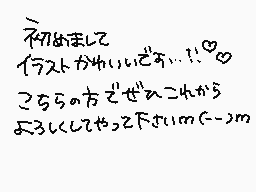 初めまして
イラストかわいいです...!!♡♡
こちらの方でぜひこれから
よろしくしてやって下さいm(--)m